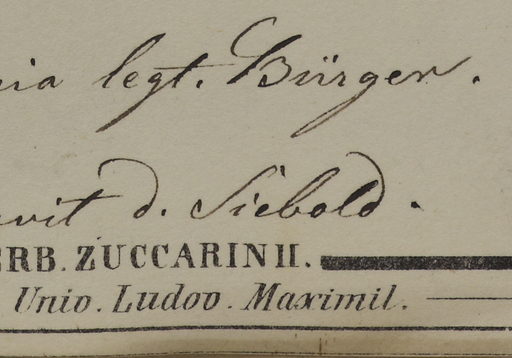 legt. Bürger.
d. Siebold.
ERB. ZUCCARINII.
Univ. Ludov. Maximil.